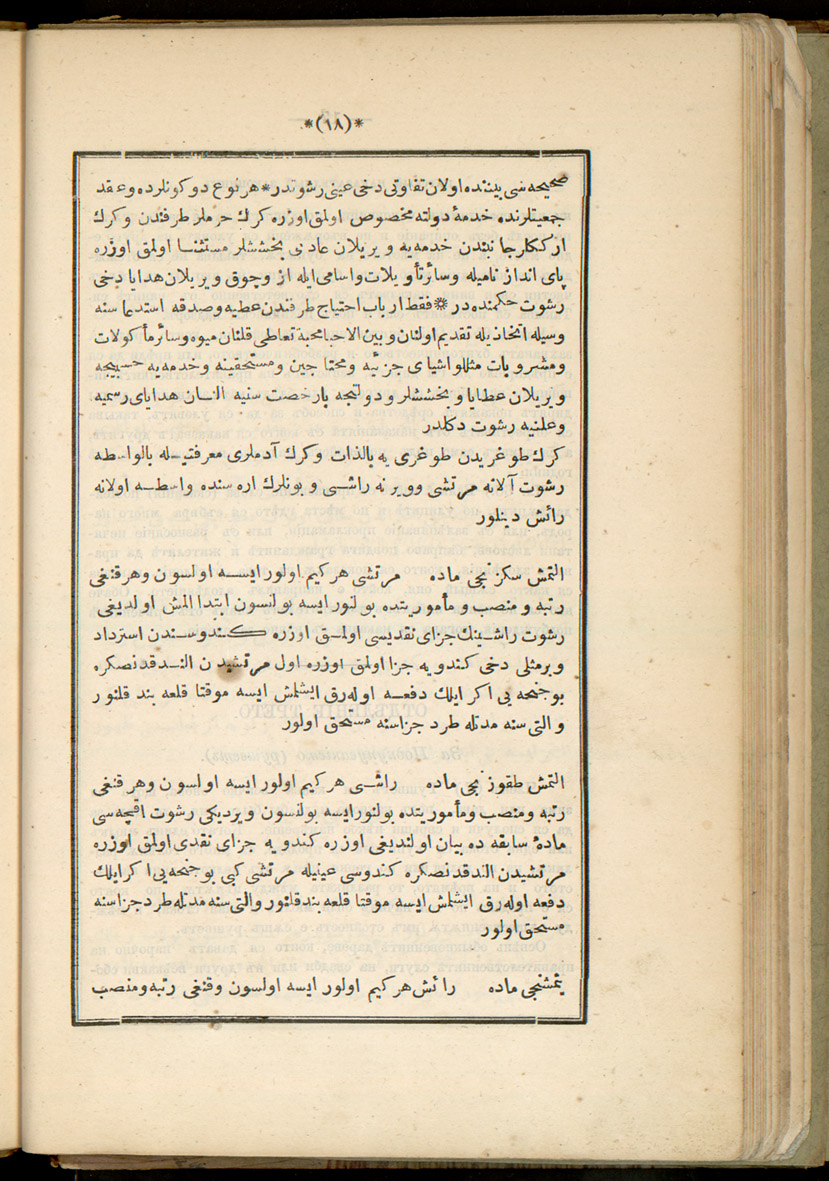 *(١٨)*
صحیحه سی بیننده اولان تفاوتی دخی عینی رشوتدر * هر نوع دوكونلرده و عقد
جمعیتلرنده خدمۀ دولته مخصوص اولمق اوزره كرك حرملر طرفندن و كرك
ازكنكار جانبندن خدمه یه ویریلان عادی بخششلر مستثنا اولمق اوزره
پای انداز نامیله وسائر تأویلات واسامی ایله از وچوق ویریلان هدایا دخی
رشوت حكمنده در * فقط ارباب احتیاج طرفندن عطیه وصدقه استدعاسنه
وسیله اتخاذیله تقدیم اولنان وبین الاحبا محبة تعاطی قلنان میوه وسائر مأكولات
ومشروبات مثللو اشیای جزئیه ومحتاجین ومستحقینه وخدمه یه حسبیجه
ویریلان عطایا وبخششلر ودولتجه بارخصت سنیه النان هدایای رسمیه
وعلنیه رشوت دكلدر
كرك طوغریدن طوغری یه بالذات وكرك آدملری معرفتیسله بالواسطه
رشوت آلانه مرتشی وویرنه راشی و بونلرك اره سنده واسطه اولانه
رائش دینلور
التمش سكزنجی ماده مرتشی هركیم اولور ایسه اولسون وهر قنغی
رتبه ومنصب ومأموریتده بولنور ایسه بولنسون ابتدا المش اولدیغی
رشوت راشینك جزای نقدیسی اولمق اوزره كندوسندن استرداد
وبرمثلی دخی كندویه جزا اولمق اوزره اول مرتشیدن الندقدنصكره
بوجنحه یی اكر ایلك دفعه اوله رق ایشلمش ایسه موقتا قلعه بند قلنور
والتی سنه مدتله طرد جزاسنه مستحق اولور
التمش طقوزنجی ماده راشی هركیم اولور ایسه اولسون وهر قنغی
رتبه ومنصب ومأموریتده بولنور ایسه بولنسون ویردیكی رشوت اقچه سی
مادۀ سابقه ده بیان اولندیغی اوزره كندویه جزای نقدی اولمق اوزره
مرتشیدن الندقدنصكره كندوسی عینیله مرتشی كبی بوجنحه یی اكر ایلك
دفعه اوله رق ایشلمش ایسه موقتا قلعه بند قلنور والتی سنه مدتله طرد جزاسنه
مستحق اولور
یتمشنجی ماده رائش هركیم اولور ایسه اولسون وقنغی رتبه ومنصب